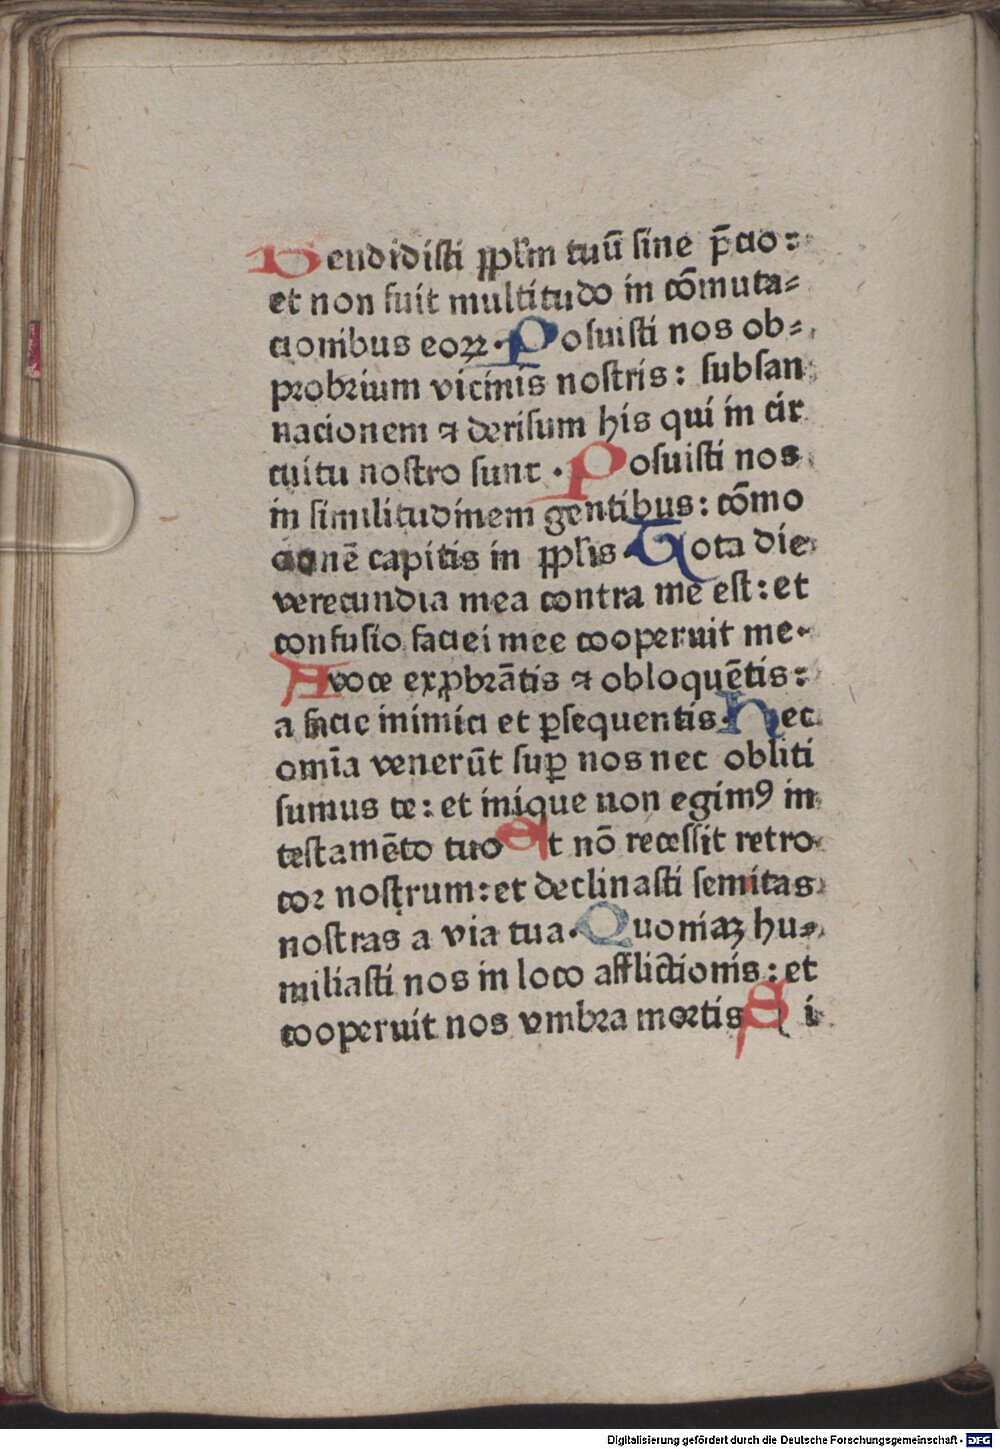 Vendidisti ꝓpl'm tuū sine p̄cio:
et non fuit multitudo in cōmuta⸗
cionibus eoꝝ. Posuisti nos ob⸗
probrium vicinis nostris: subsan
nacionem ⁊ derisum his qui in cir
cuitu nostro sunt. Posuisti nos
in similitudinem gentibus: cōmo
cionē capitis in ꝓpl'is. Tota die
verecundia mea contra me est: et
confusio faciei mee cooperuit me.
A voce exꝓbrātis ⁊ obloquētis:
a facie inimici et ꝑsequentis. Hec
omīa venerūt suꝑ nos nec obliti
sumus te: et inique non egimꝰ in
testamēto tuo Et nō recessit retro
cor nostrum: et declinasti semitas
nostras a via tua. Quoniaꝫ hu⸗
miliasti nos in loco afflictionis: et
cooperuit nos vmbra mortis Si
Digitalisierung gefördert durch die Deutsche Forschungsgemeinschaft - DFG